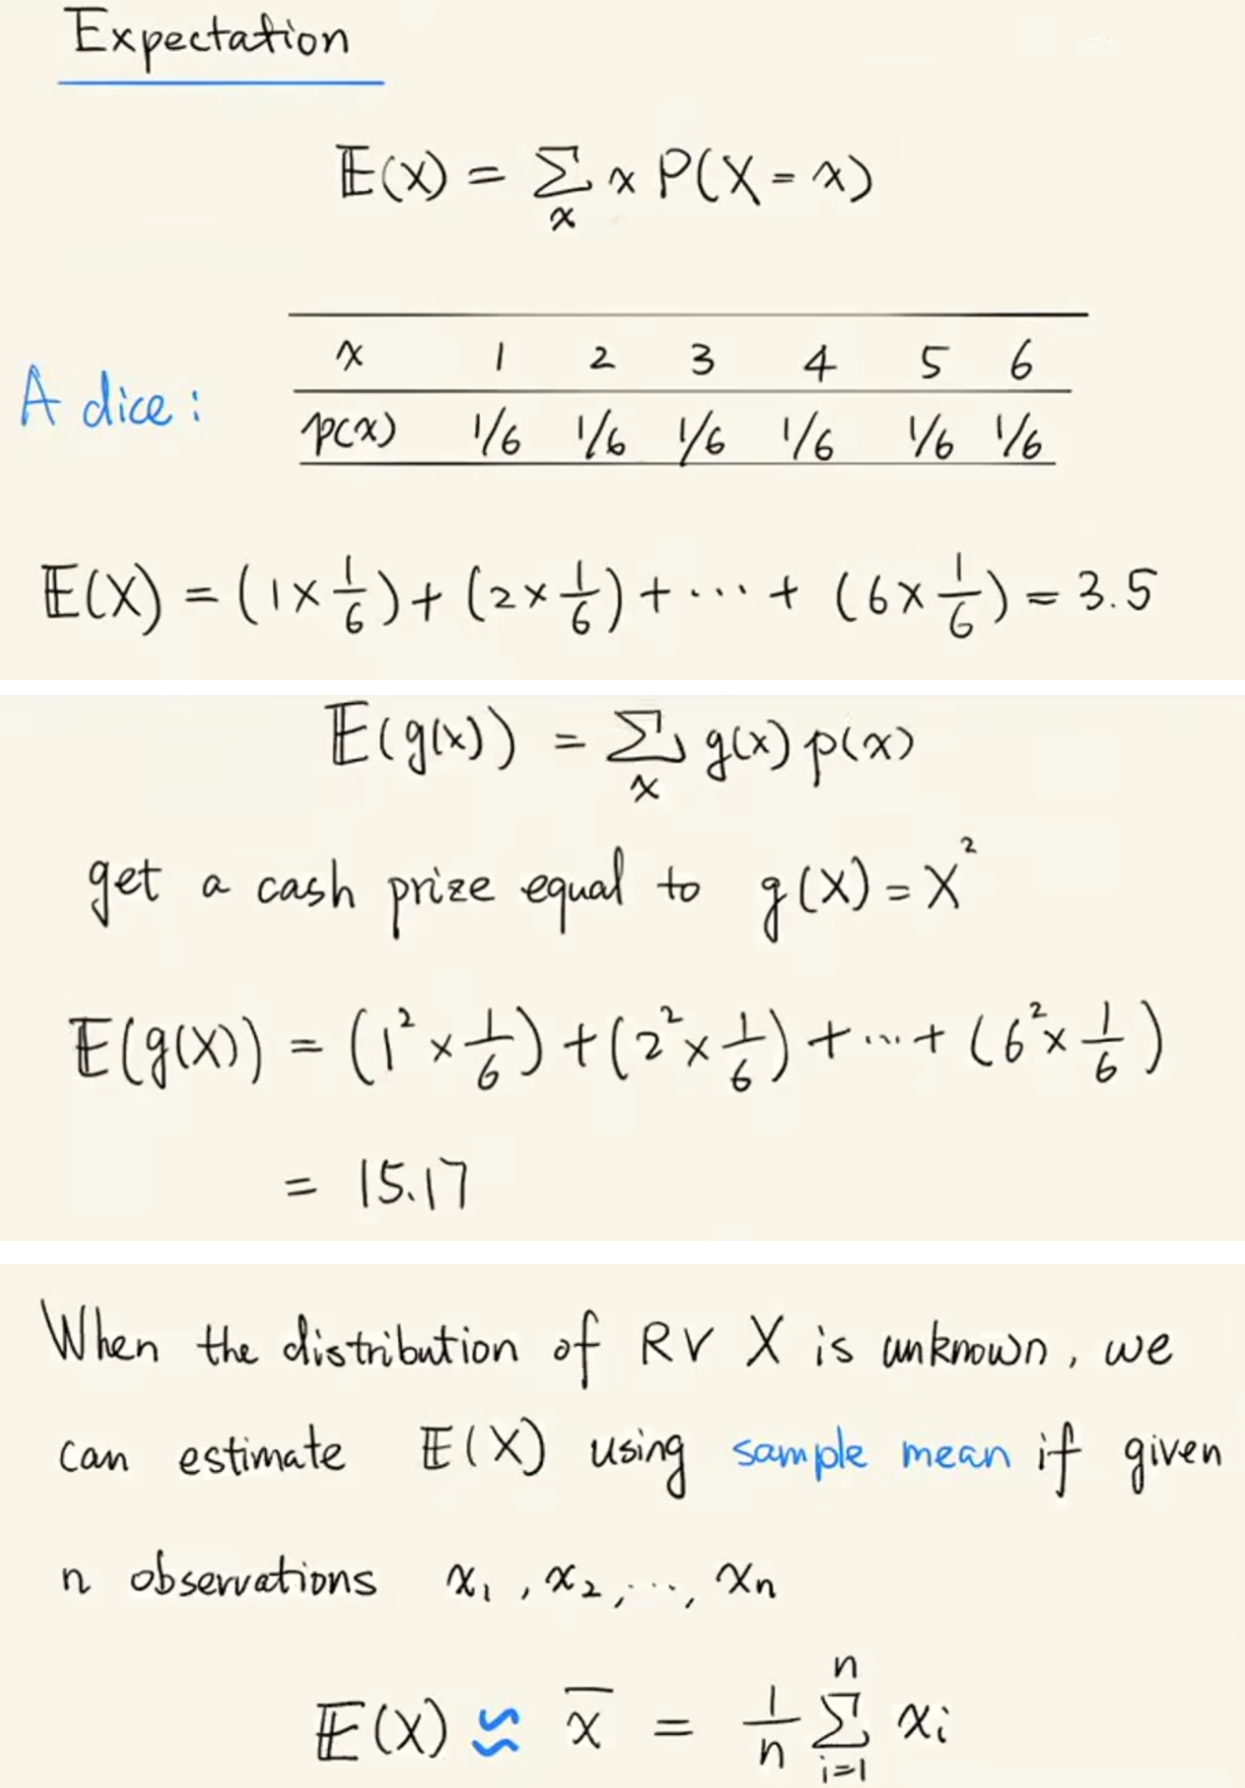 Expectation
𝔼(X) = Σₓ x P(X = x)
x 1 2 3 4 5 6
A dice :
p(x) 1/6 1/6 1/6 1/6 1/6 1/6
𝔼(X) = (1 × 1/6) + (2 × 1/6) + ... + (6 × 1/6) = 3.5
𝔼(g(x)) = Σₓ g(x) p(x)
get a cash prize equal to g(X) = X²
𝔼(g(X)) = (1² × 1/6) + (2² × 1/6) + ... + (6² × 1/6)
= 15.17
When the distribution of RV X is unknown, we
can estimate 𝔼(X) using sample mean if given
n observations x₁, x₂, ..., xₙ
𝔼(X) ≈ x̄ = 1/n Σᵢ₌₁ⁿ xᵢ